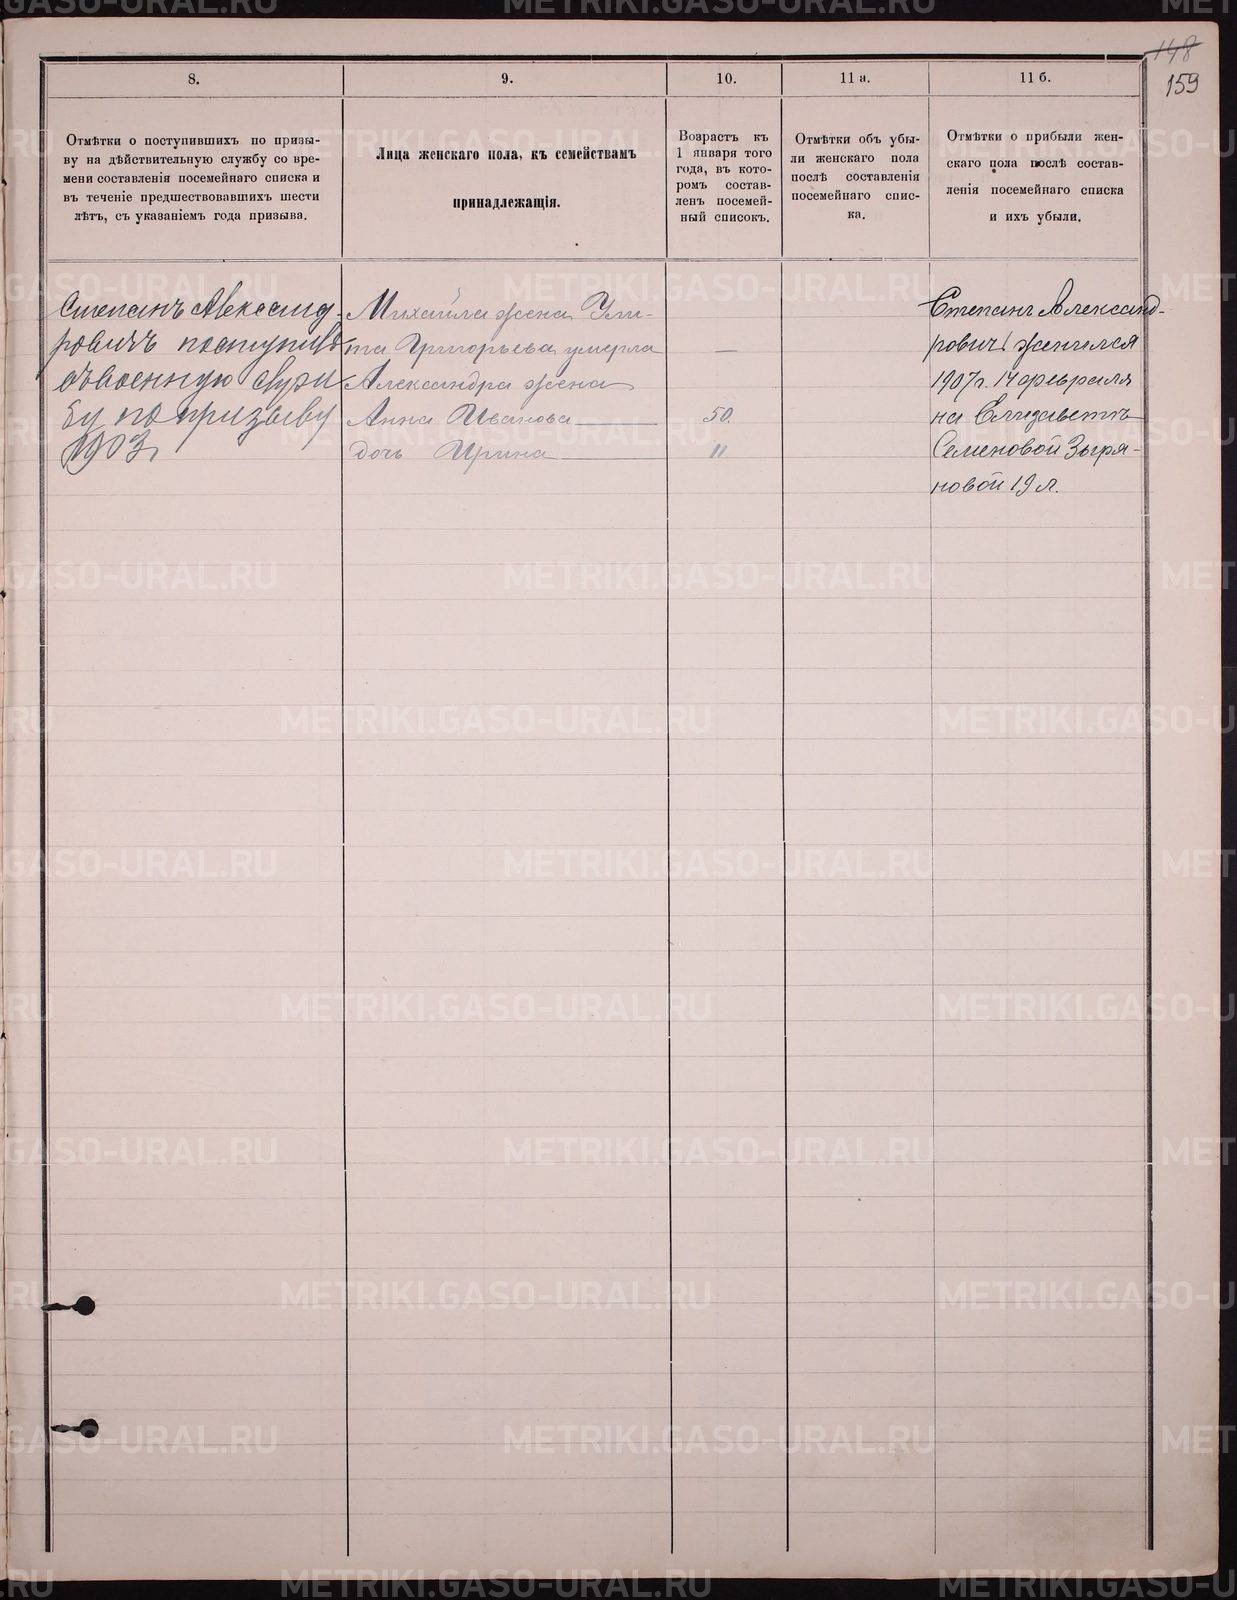 148
159
8.
9.
10.
11 а.
11 б.
Отмѣтки о поступившихъ по призы-
ву на дѣйствительную службу со вре-
мени составленія посемейнаго списка и
въ теченіе предшествовавшихъ шести
лѣтъ, съ указаніемъ года призыва.
Лица женскаго пола, къ семействамъ
принадлежащія.
Возрастъ къ
1 января того
года, въ кото-
ромъ состав-
ленъ посемей-
ный списокъ.
Отмѣтки объ убы-
ли женскаго пола
послѣ составленія
посемейнаго спис-
ка.
Отмѣтки о прибыли жен-
скаго пола послѣ состав-
ленія посемейнаго списка
и ихъ убыли.
Степанъ Александ-
ровичъ поступилъ
въ военную служ
бу по призыву
1903 г.
Михаила жена Ули-
та Григорьева умерла —
Александра жена
Анна Иванова 50.
дочь Ирина 11
Степанъ Александ-
ровичъ женился
1907 г. 14 февраля
на Елизаветѣ
Семеновой Зыря-
новой 19 л.
METRIKI.GASO-URAL.RU